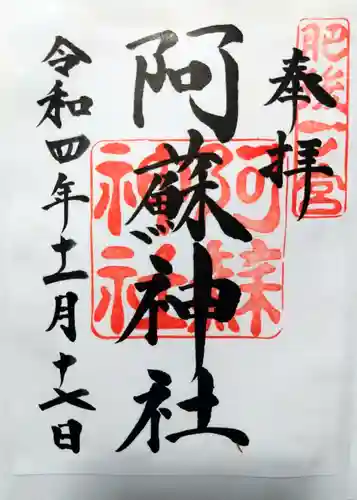 肥後一宮
奉拝
阿蘇神社
阿蘇神社
令和四年十一月十七日